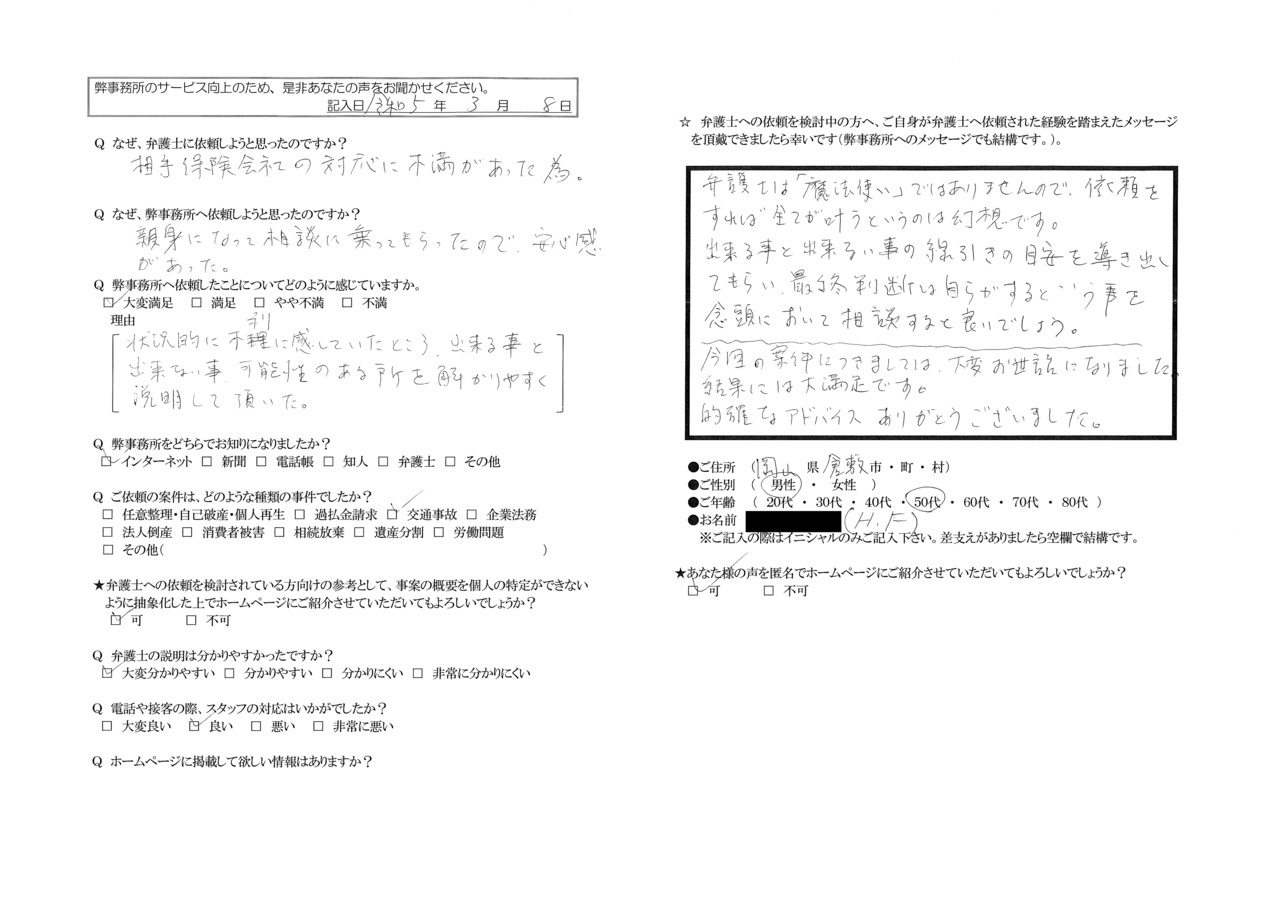 弊事務所のサービス向上のため、是非あなたの声をお聞かせください。
記入日 令和5 年 3 月 8 日
Q なぜ、弁護士に依頼しようと思ったのですか？
相手保険会社の対応に不満があった為。
Q なぜ、弊事務所へ依頼しようと思ったのですか？
親身になって相談に乗ってもらったので、安心感
があった。
Q 弊事務所へ依頼したことについてどのように感じていますか。
☑ 大変満足 □ 満足 □ やや不満 □ 不満
理由
利
状況的に不理に感していたところ、出来る事と
出来ない事、可能性のある所を解かりやすく
説明して頂いた。
Q 弊事務所をどちらでお知りになりましたか？
☑ インターネット □ 新聞 □ 電話帳 □ 知人 □ 弁護士 □ その他
Q ご依頼の案件は、どのような種類の事件でしたか？
□ 任意整理・自己破産・個人再生 □ 過払金請求 ☑ 交通事故 □ 企業法務
□ 法人倒産 □ 消費者被害 □ 相続放棄 □ 遺産分割 □ 労働問題
□ その他( )
★弁護士への依頼を検討されている方向けの参考として、事案の概要を個人の特定ができない
ように抽象化した上でホームページにご紹介させていただいてもよろしいでしょうか？
☑ 可 □ 不可
Q 弁護士の説明は分かりやすかったですか？
☑ 大変分かりやすい □ 分かりやすい □ 分かりにくい □ 非常に分かりにくい
Q 電話や接客の際、スタッフの対応はいかがでしたか？
□ 大変良い ☑ 良い □ 悪い □ 非常に悪い
Q ホームページに掲載して欲しい情報はありますか？
☆ 弁護士への依頼を検討中の方へ、ご自身が弁護士へ依頼された経験を踏まえたメッセージ
を頂戴できましたら幸いです(弊事務所へのメッセージでも結構です。)。
弁護士は「魔法使い」ではありませんので、依頼を
すれば全てが叶うというのは幻想です。
出来る事と出来ない事の線引きの目安を導き出し
てもらい、最終判断は自らがするという事を
念頭において相談すると良いでしょう。
今回の案件につきましては、大変お世話になりました。
結果には大満足です。
的確なアドバイス ありがとうございました。
●ご住所 (岡山 県 倉敷市・町・村)
●ご性別 ( 男性 ・ 女性 )
●ご年齢 ( 20代 ・ 30代 ・ 40代 ・ 50代 ・ 60代 ・ 70代 ・ 80代 )
●お名前 (H.F)
※ご記入の際はイニシャルのみご記入下さい。差支えがありましたら空欄で結構です。
★あなた様の声を匿名でホームページにご紹介させていただいてもよろしいでしょうか？
☑ 可 □ 不可